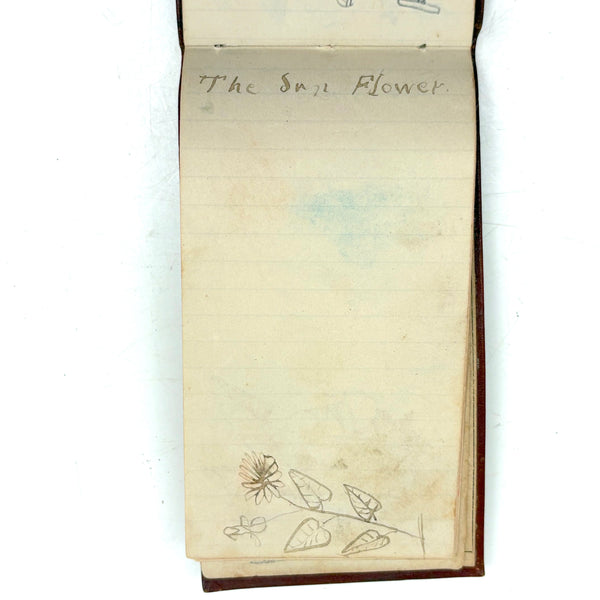 The Sun Flower.